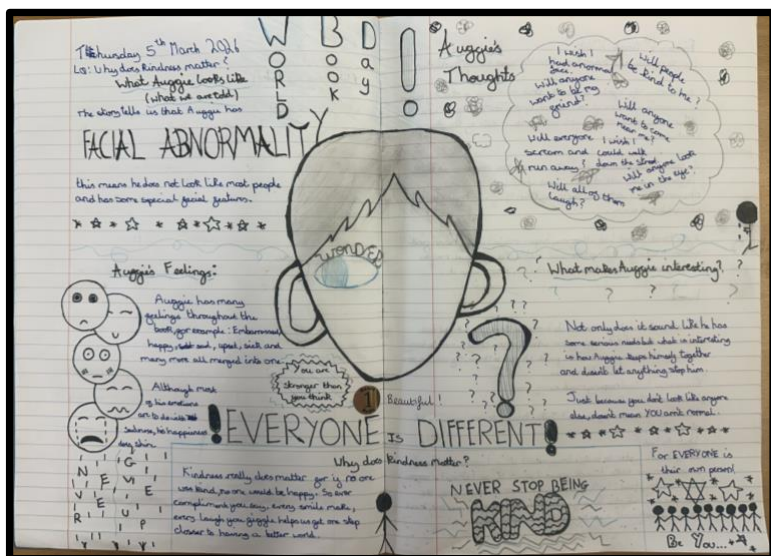 Thursday 5th March 2026
LO: Why does kindness matter?
What Auggie looks like
(what we are told)
The story tells us that Auggie has
FACIAL ABNORMALITY
this means he does not look like most people
and has some special facial features.
WORLD
Book
Day!
Auggie's
Thoughts
I wish I
had a normal
face.
Will people
be kind to me?
Will anyone
want to be my
friend?
Will anyone
want to come
near me?
Will everyone
scream and
run away?
I wish I
could walk
down the street
Will anyone look
me in the eye?
Will all of them
laugh?
WONDER
Auggie's Feelings:
Auggie has many
feelings throughout the
book, for example: Embarrassed,
happy, sad, upset, sick and
many more all merged into one.
Although most
of his emotions
are to do with
sadness, his happiness
may shine.
NEVER
GIVE
UP
You are
stronger than
you think
1
Beautiful!
What makes Auggie interesting?
Not only does it sound like he has
some serious needs but what is interesting
is how Auggie keeps himself together
and doesn't let anything stop him.
Just because you don't look like anyone
else, doesn't mean YOU aren't normal.
!EVERYONE IS DIFFERENT!
Why does kindness matter?
Kindness really does matter for if no one
was kind, no one would be happy. So ever
compliment you say, every smile make,
every laugh you giggle helps us get one step
closer to having a better world.
NEVER STOP BEING
KIND
For EVERYONE is
their own person!
Be You...